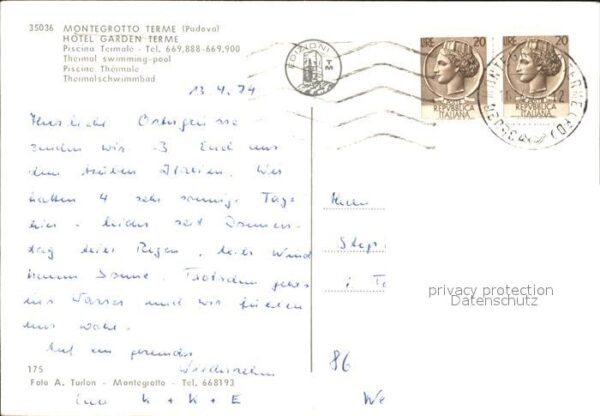 35036 MONTEGROTTO TERME (Padova)
HOTEL GARDEN TERME
Piscina Termale - Tel. 669.888-669.900
Thermal swimming-pool
Piscine Thermale
Thermalschwimmbad
LIRE 20
REPUBBLICA
ITALIANA
LIRE 20
REPUBBLICA
ITALIANA
EDIZIONI
TM
13.4.74
Herzliche Ostergrüsse
senden wir 3 Euch aus
dem trüben Italien. Wir
hatten 4 sehr sonnige Tage
hier - leider seit Donners-
tag hier Regen, teils Wind
kaum Sonne. Trotzdem gehts
ins Wasser und wir fühlen
uns wohl.
Auf ein gesundes
Wiedersehen
Eure K + K + E
Herrn
i
86
privacy protection
Datenschutz
175
Foto A. Turlon - Montegrotto - Tel. 668193